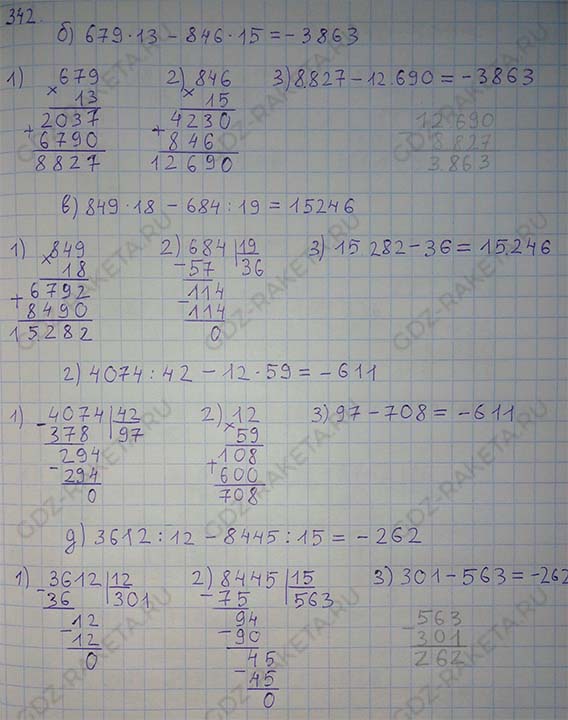 342.
б) 679·13 − 846·15 = −3863
1) 679 2) 846 3) 8.827 − 12.690 = −3863
× 13 × 15 12690
2037 4230 − 8827
+ 6790 + 846 3863
8827 12690
в) 849·18 − 684:19 = 15246
1) 849 2) 684 | 19 3) 15 282 − 36 = 15.246
× 18 − 57 | 36
6792 − 114
+ 8490 114
15282 0
г) 4074:42 − 12·59 = −611
1) − 4074 | 42 2) 12 3) 97 − 708 = −611
378 | 97 × 59
− 294 + 108
294 600
0 708
д) 3612:12 − 8445:15 = −262
1) − 3612 | 12 2) − 8445 | 15 3) 301 − 563 = −262
36 | 301 75 | 563 − 563
− 12 − 94 301
12 90 262
0 − 45
45
0
GDZ-RAKETA.RU